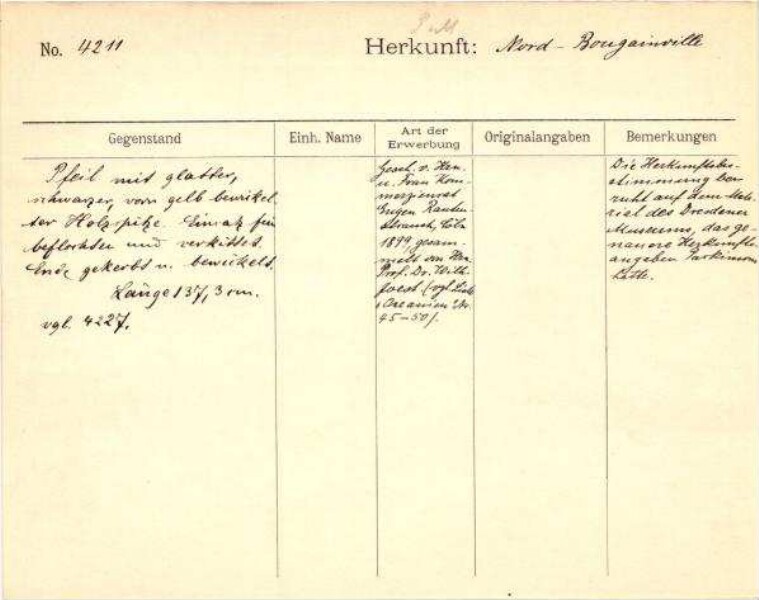 No. 4211
Herkunft: Nord-Bougainville
Gegenstand
Einh. Name
Art der Erwerbung
Originalangaben
Bemerkungen
Pfeil mit glatter,
schwarzer, vorn gelb bewickel-
ter Holzspitze. Einsatz fein
beflochten und verkittet.
Ende gekerbt u. bewickelt.
Länge 137,3 cm.
vgl. 4227.
Gesch. v. Hrn.
u. Frau Kom-
merzienrat
Eugen Rauten-
strauch, Cöln
1899, gesam-
melt von Hrn.
Prof. Dr. Wilh.
Joest (vgl. Liste
Oceanien Nr.
45-50).
Die Herkunftsbe-
stimmung be-
ruht auf dem Mate-
rial des Dresdener
Museums, das ge-
nauere Herkunfts-
angaben Parkinsons
hatte.